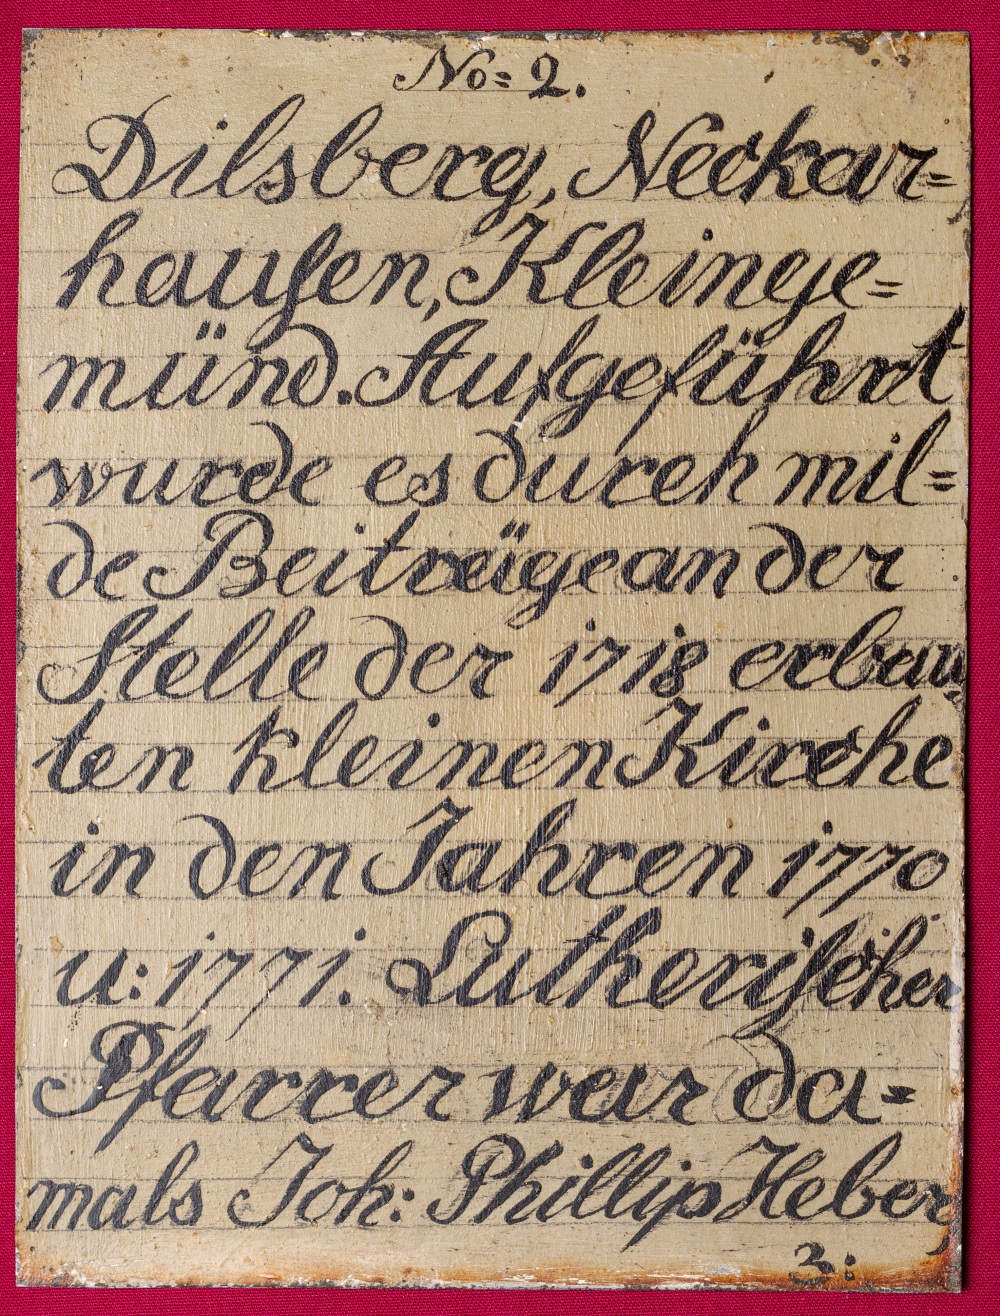 No= 2.
Dilsberg, Neckar=
hauſen, Kleinge=
münd. Aufgeführt
wurde es durch mil=
de Beiträge an der
Stelle der 1718 erbau
ten kleinen Kirche
in den Jahren 1770
u: 1771. Lutheriſcher
Pfarrer war da=
mals Joh: Phillip Heber,
3: